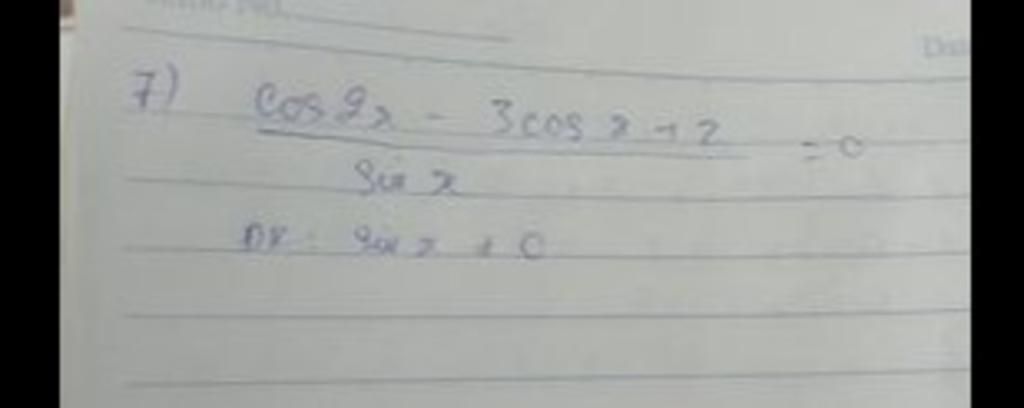 7) cos2x - 3cosx + 2 = 0
sin x
ĐK: sin x ≠ 0